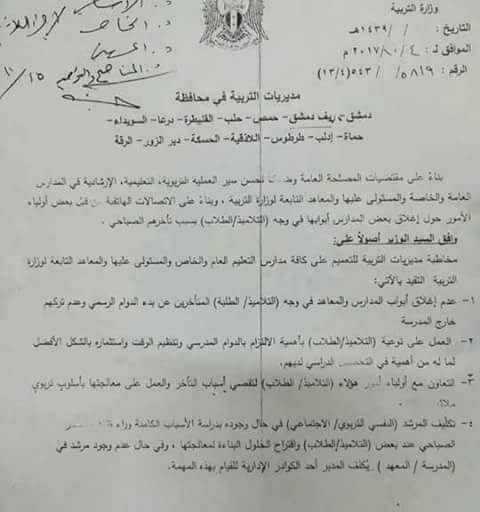 وزارة التربية
التاريخ : / / ١٤٣٩هـ
الموافق لـ : ٤ /١٠/ ٢٠١٧ م
الرقم : ٥٨١٩ / ٥٤٣ (١٣/٤)
مديريات التربية في محافظة
دمشق – ريف دمشق- حمص- حلب- القنيطرة- درعا- السويداء-
حماة- إدلب- طرطوس- اللاذقية- الحسكة- دير الزور- الرقة
بناءً على مقتضيات المصلحة العامة حسن سير العملية التربوية، التعليمية، الإرشادية في المدارس
العامة والخاصة والمستولى عليها والمعاهد التابعة لوزارة التربية ، وبناءً على الاتصالات الهاتفية من قبل بعض أولياء
الأمور حول إغلاق بعض المدارس أبوابها في وجه (التلاميذ/الطلاب) بسبب تأخرهم الصباحي .
وافق السيد الوزير أصولاً على:
مخاطبة مديريات التربية للتعميم على كافة مدارس التعليم العام والخاص والمستولى عليها والمعاهد التابعة لوزارة
التربية التقيد بالآتي:
١- عدم إغلاق أبواب المدارس والمعاهد في وجه (التلاميذ/ الطلبة) المتأخرين عن بدء الدوام الرسمي وعدم تركهم
خارج المدرسة
٢- العمل على توعية (التلاميذ/الطلاب) بأهمية الالتزام بالدوام المدرسي وتنظيم الوقت واستثماره بالشكل الأفضل
لما له من أهمية في الدراسي لديهم.
٣- التعاون مع أولياء أمور هؤلاء (التلاميذ/ الطلاب) لتقصي أسباب التأخر والعمل على معالجتها بأسلوب تربوي
٤- تكليف المرشد (النفسي التربوي/ الاجتماعي) في حال وجوده بدراسة الأسباب الكامنة وراء
الصباحي عند بعض (التلاميذ/الطلاب) واقتراح الحلول البناءة لمعالجتها ، وفي حال عدم وجود مرشد في
(المدرسة / المعهد ) يُكلف المدير أحد الكوادر الإدارية للقيام بهذه المهمة.